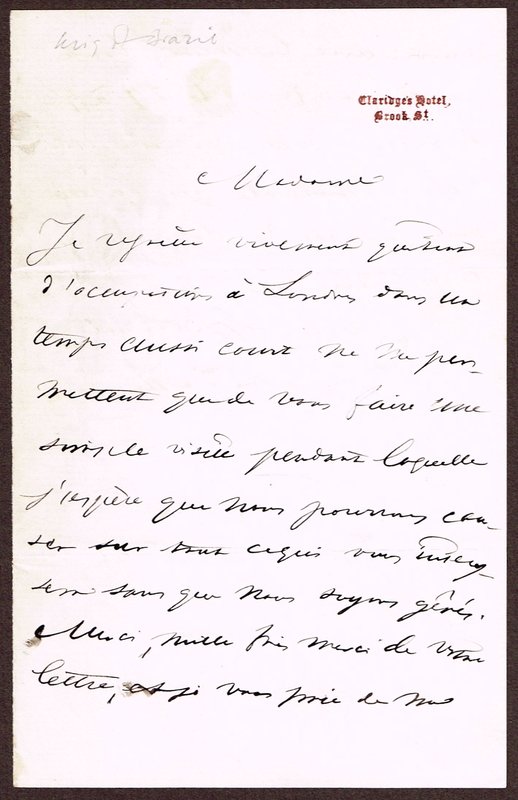 King of Brazil
Claridge's Hotel,
Brook St.
Madame
Je regrette vivement que tant
d'occupations à Londres dans un
temps aussi court ne me per-
mettent que de vous faire une
simple visite pendant laquelle
j'espère que nous pourrons cau-
ser sur tout ce qui vous intéres-
sera sans que nous soyons gênés.
Merci, mille fois merci de votre
lettre, et je vous prie de me